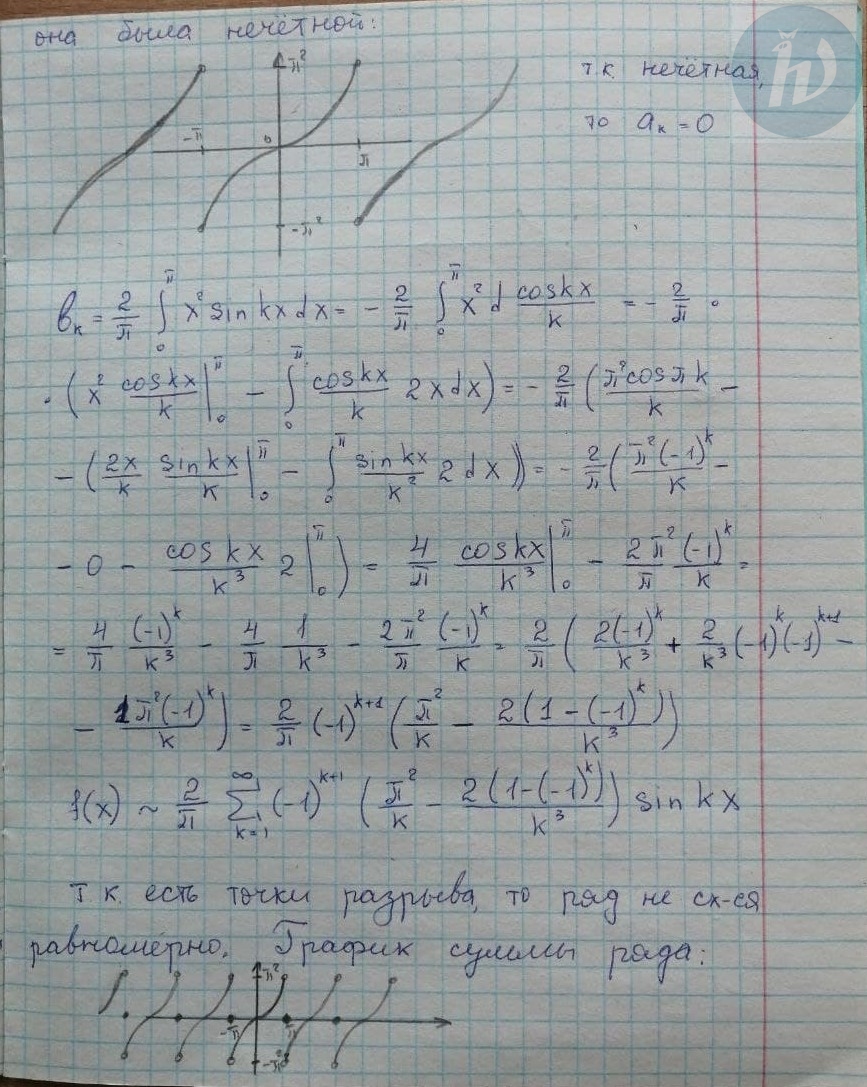 она была нечётной:
π²
т.к. нечётная,
-π 0 π
то aₖ = 0
-π²
bₖ = 2/π ∫₀^π x² sin kx dx = - 2/π ∫₀^π x² d cos kx/k = - 2/π ·
· ( x² cos kx/k |₀^π - ∫₀^π cos kx/k 2x dx ) = - 2/π ( π² cos πk/k -
- ( 2x/k sin kx/k |₀^π - ∫₀^π sin kx/k² 2 dx )) = - 2/π ( π² (-1)^k/k -
- 0 - cos kx/k³ 2 |₀^π ) = 4/π cos kx/k³ |₀^π - 2π²/π (-1)^k/k =
= 4/π (-1)^k/k³ - 4/π 1/k³ - 2π²/π (-1)^k/k = 2/π ( 2(-1)^k/k³ + 2/k³ (-1)^k (-1)^(k+1) -
- 1π²(-1)^k/k ) = 2/π (-1)^(k+1) ( π²/k - 2(1-(-1)^k)/k³ )
f(x) ~ 2/π ∑_(k=1)^∞ (-1)^(k+1) ( π²/k - 2(1-(-1)^k)/k³ ) sin kx
Т.к. есть точки разрыва, то ряд не сх-ся
равномерно. График суммы ряда:
π²
-π π
-π²